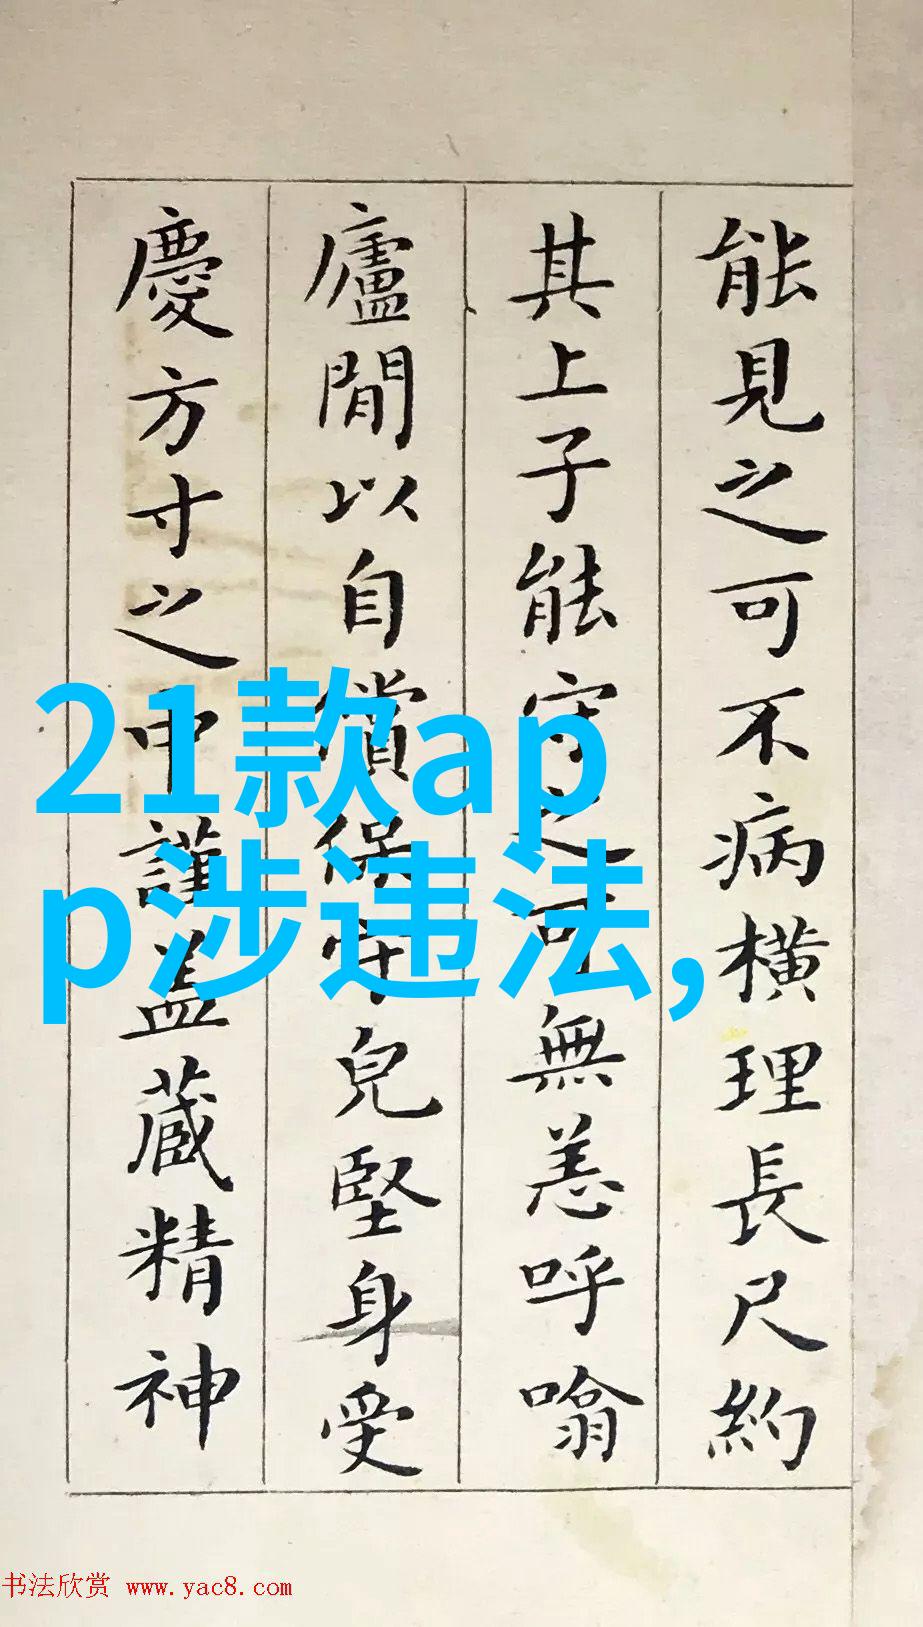 能見之可不病橫理長尺約
其上子能守之可無恙呼噏
廬間以自償保守皃堅身受
慶方寸之中謹盖藏精神
21款ap
p涉违法,
书法欣赏 www.yac8.com